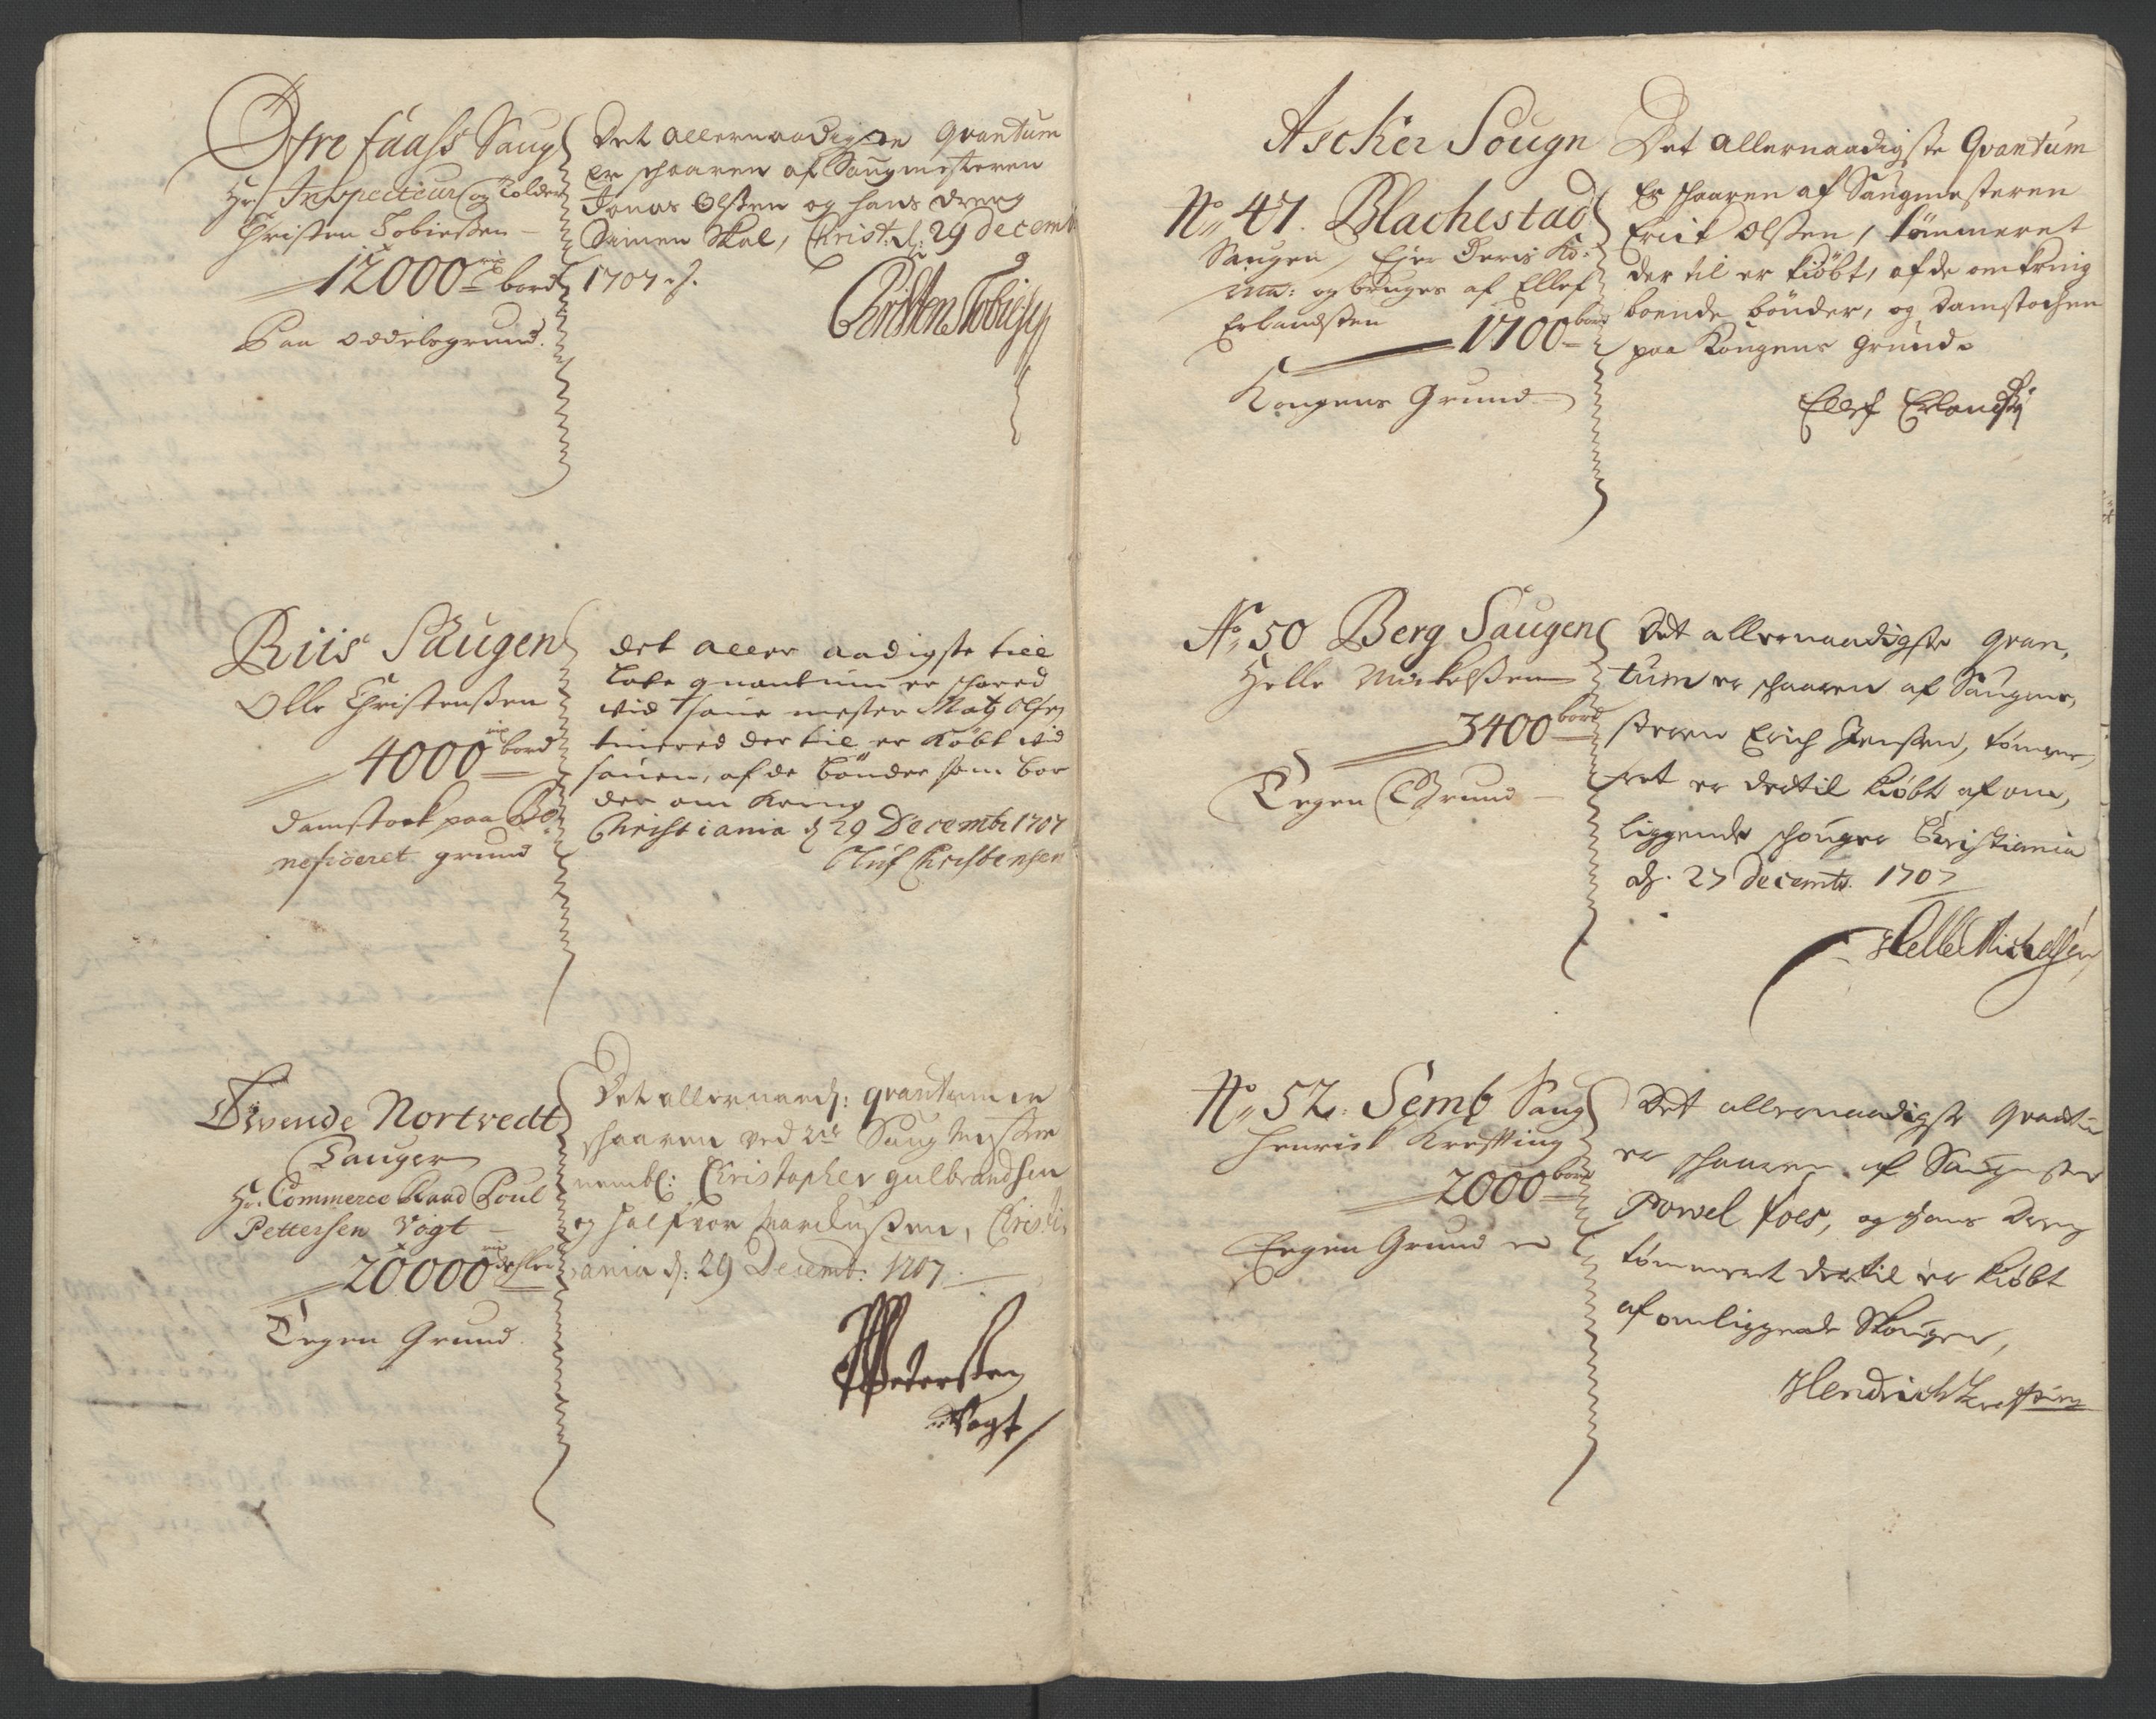 Øfre faass Saug
Hr Inspecteur og Tolder
Christen Tobiessen
12000 bord
Paa oddelsgrund.
Det allernaadigste Qvantum
er schaaren af Saugmesteren
Jonas Olssen og hans dreng
Simen Skol, Christ: d: 29 decemb
1707.
Christen Tobiessen
Riis Saugen
Olle Christenssen
4000 bord
damstock paa Be-
neficeret grund
det aller aadigste till
Late quantum er schared
vid Saue mester Matz Olsen
timered der til er Købt vid
sauen, af de bønder som bor
der om Kring
Christiania d 29 Decembr 1707
Oluf Christensen
Tvende Nortvedt
Sauger
Hr. Commerce Raad Poul
Pettersen Vogt
20000 dehler
Eegen Grund.
Det allernaad: qvantum er
schaaren ved 2de Saug Mestere
nembl: Christopher gulbrandsen
og Halfvor Marcussen, Christi
ania d: 29 Decemb: 1707.
PPetersen
Vogt
Ascker Sougn
No 47. Blachestad
Saugen, Ejer Joris
og bruges af Ellef
Erlandssen
1700 bord
Kongens Grund
Det allernaadigste Qvantum
Er schaaren af Saugmesteren
Erick Olssen, tømmeret
der til er kiøbt, af de omkring
boende bønder, og damstochen
paa Kongens Grund.
Ellef Erlandss
No 50 Berg Saugen
Helle Mickelssen
3400 bord
Eegen Grund
Det allernaadigste qvan,
tum er schaaren af Saugme,
steren Erich Jenssen, tømme,
ret er dertil kiøbt af om,
liggende schouger Christiania
d. 27 decemb. 1707
Helle Michelsen
No 52. Semb Saug
Henrick Krefting
2000 bord
Eegen Grund
Det allernaadigste Qvantu
er schaaren af Saugmester
Powel foes, og hans dreng
tømmeret dertil er kiøbt
af omliggende Skouger,
Hendrich Krefting